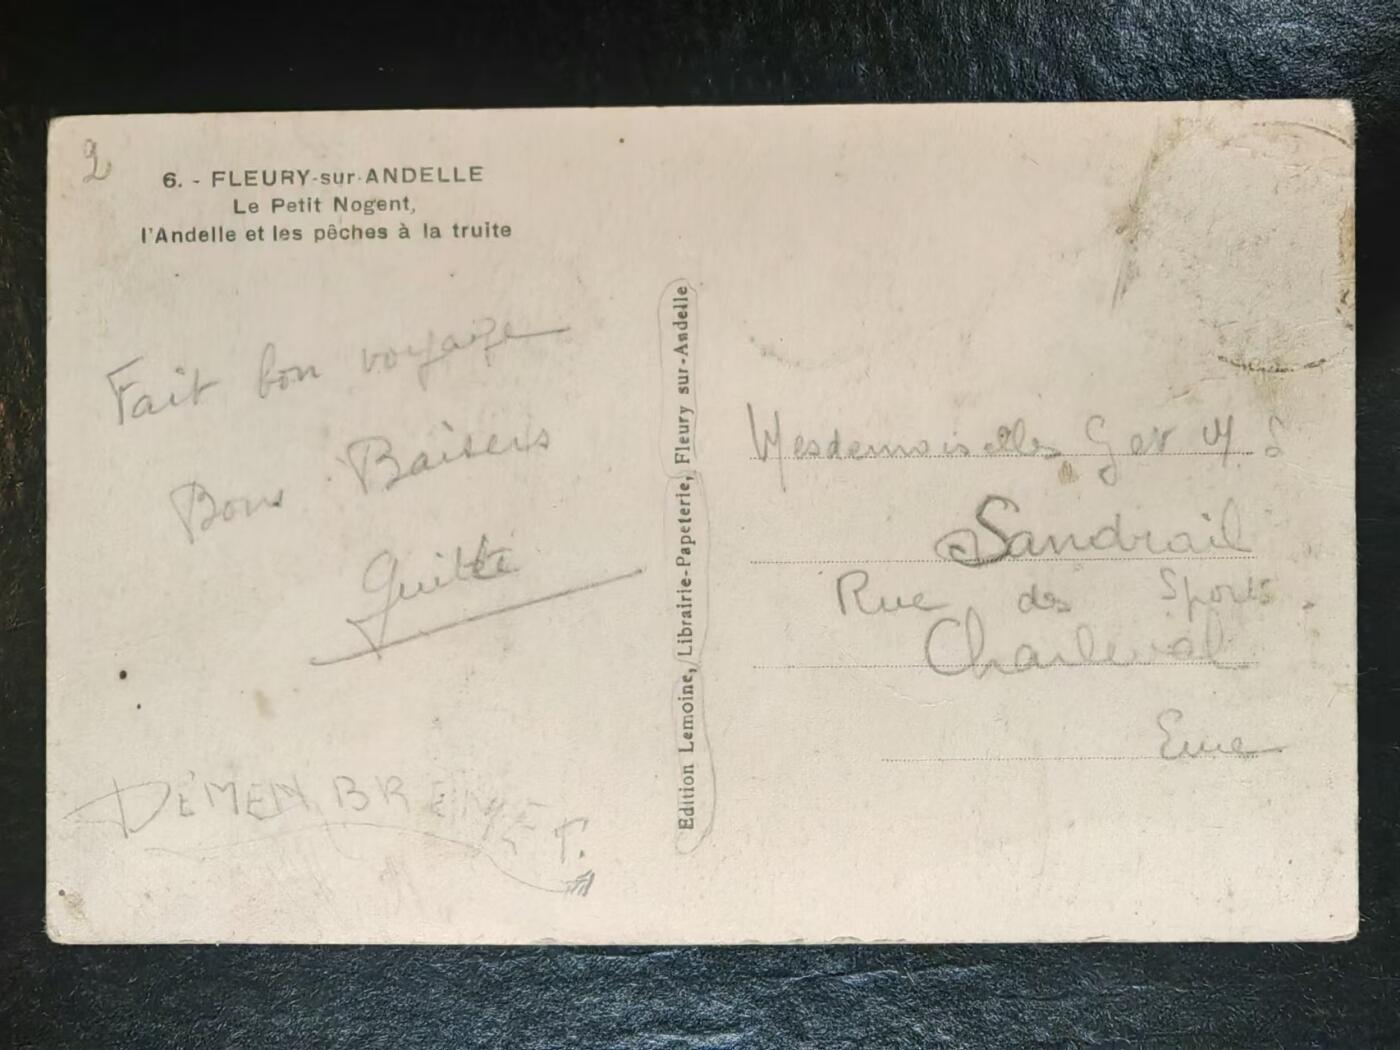 2
6. - FLEURY-sur-ANDELLE
Le Petit Nogent,
l'Andelle et les pêches à la truite
Fait bon voyage
Bons Baisers
Guitte
Edition Lemoine, Librairie-Papeterie, Fleury sur-Andelle
Mesdemoiselles G et M. S
Sandrail
Rue des Sports.
Charleval
Eure